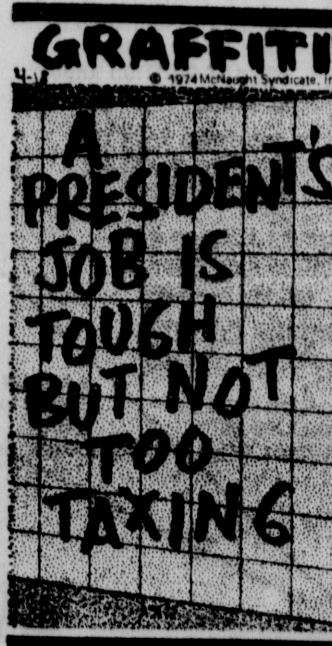 GRAFFITI
4-18
© 1974 McNaught Syndicate, In
A
PRESIDENT'S
JOB IS
TOUGH
BUT NOT
TOO
TAXING